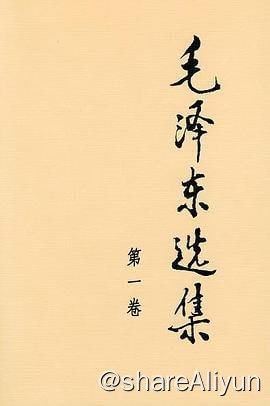 毛泽东选集
第一卷
@shareAliyun